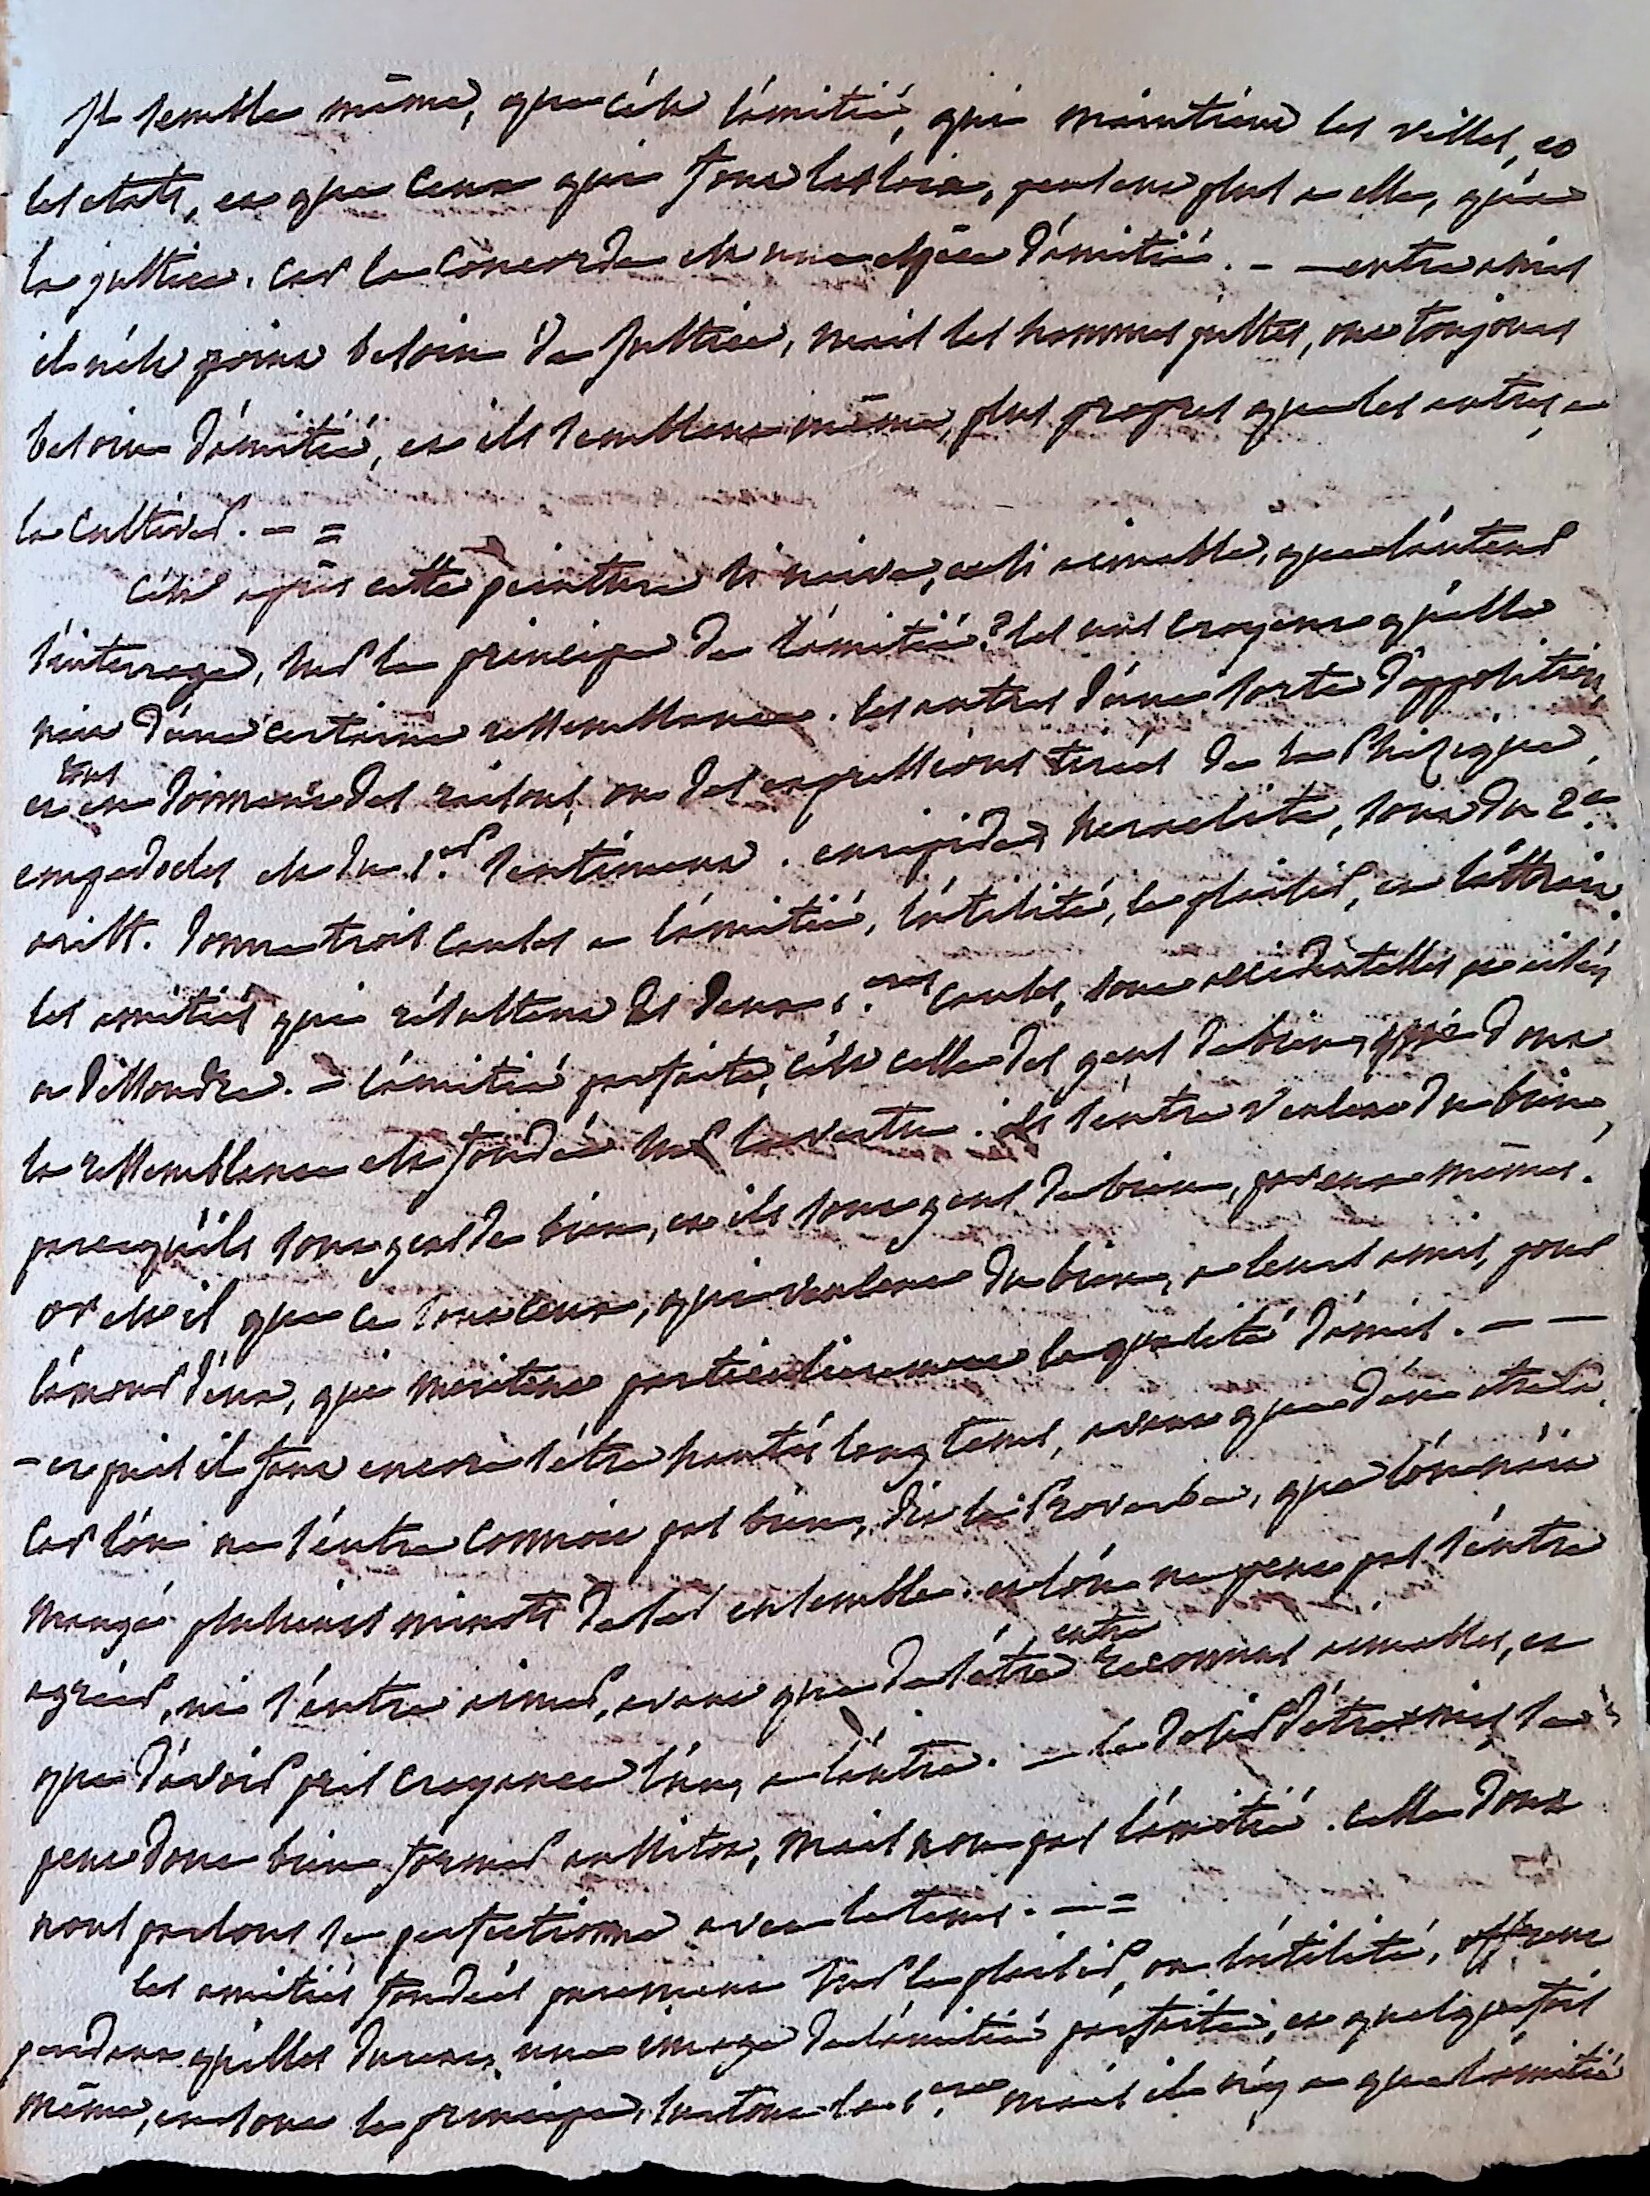 Il semble même, que c'est l'amitié, qui maintient les villes, et
les etats, et que ceux qui font les loix, pensent plus a elle, qu'a
la justice. car la concorde est une espèce d'amitié. — — entre amis
il n'est point besoin de justice, mais les hommes justes, ont toujours
besoin d'amitié, et ils semblent même, plus propres que les autres, a
la cultiver. — =
c'est après cette peinture si naive, et si aimable, que l'auteur
s'interroge, sur le principe de l'amitié? les uns croyent qu'elle
nait d'une certaine ressemblance. les autres d'une sorte d'opposition,
et tous en donnent des raisons, ou des expressions tirées de la Phisique.
empedocles est du 1.er sentiment. euripide, heraclite, sont du 2.e
arist. donne trois causes a l'amitié, l'utilité, le plaisir, et l'attrait.
les amitiés qui résultent des deux 1.eres causes, sont accidentelles et aisées
a dissoudre. — l'amitié parfaite, c'est celle des gens de bien, dont
la ressemblance est fondée sur la vertu. ils s'entre veulent du bien,
parcequ'ils sont gens de bien, et ils sont gens de bien, par eux mêmes.
or est il que ce sont ceux, qui veulent du bien, a leurs amis, pour
l'amour d'eux, qui meritent particulierement la qualité d'amis. — —
— et puis il faut encore s'être hantés long tems, avant que d'en etre la.
car l'on ne s'entre connoit pas bien, dit le Proverbe, que l'on n'ait
mangé plusieurs minots de sel ensemble. et l'on ne peut pas s'entre
agréer, ni s'entre aimer, avant que de s'être entre reconnus aimables, et
que d'avoir pris croyance l'un, a l'autre. — le desir d'etre amis, se
peut donc bien former aussitot, mais non pas l'amitié. celle dont
nous parlons se perfectionne avec le tems. — =
les amitiés fondées purement sur le plaisir, ou l'utilité, offrent
pendant qu'elles durent, une image de l'amitié parfaite, et quelquefois
même, en sont le principe, surtout la 1.ere mais il n'y a que l'amitié